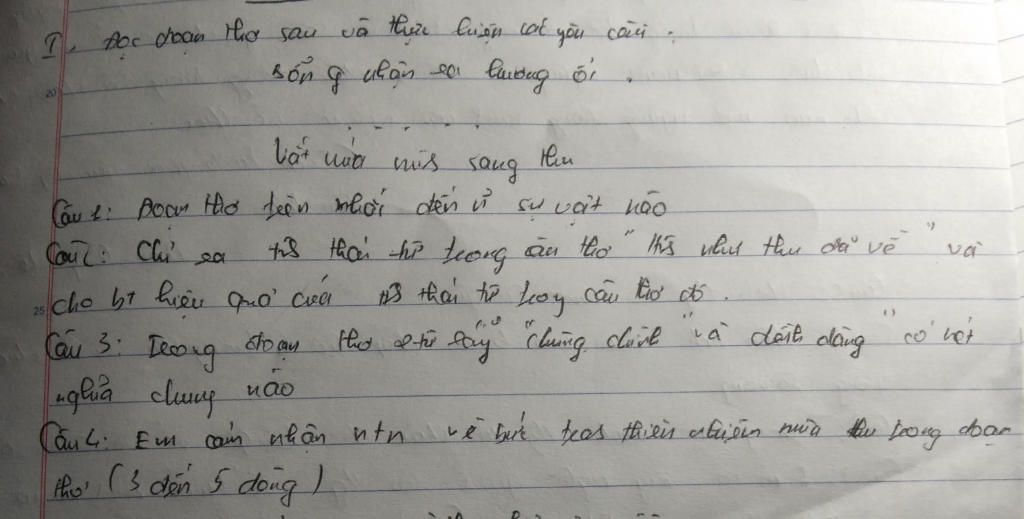 I. Đọc đoạn thơ sau và thực hiện các yêu cầu:
Bỗng nhận ra hương ổi.
. . . . .
Vắt nửa mình sang thu
Câu 1: Đoạn thơ trên nhắc đến n sự vật nào
Câu 2: Chỉ ra tình thái từ trong câu thơ "Hình như thu đã về" và
cho bt hiệu quả của tình thái từ trong câu thơ đó.
Câu 3: Trong đoạn thơ 2 từ láy "chùng chình" và dềnh dàng" có nét
nghĩa chung nào
Câu 4: Em cảm nhận ntn về bức tranh thiên nhiên mùa thu trong đoạn
thơ (3 đến 5 dòng)